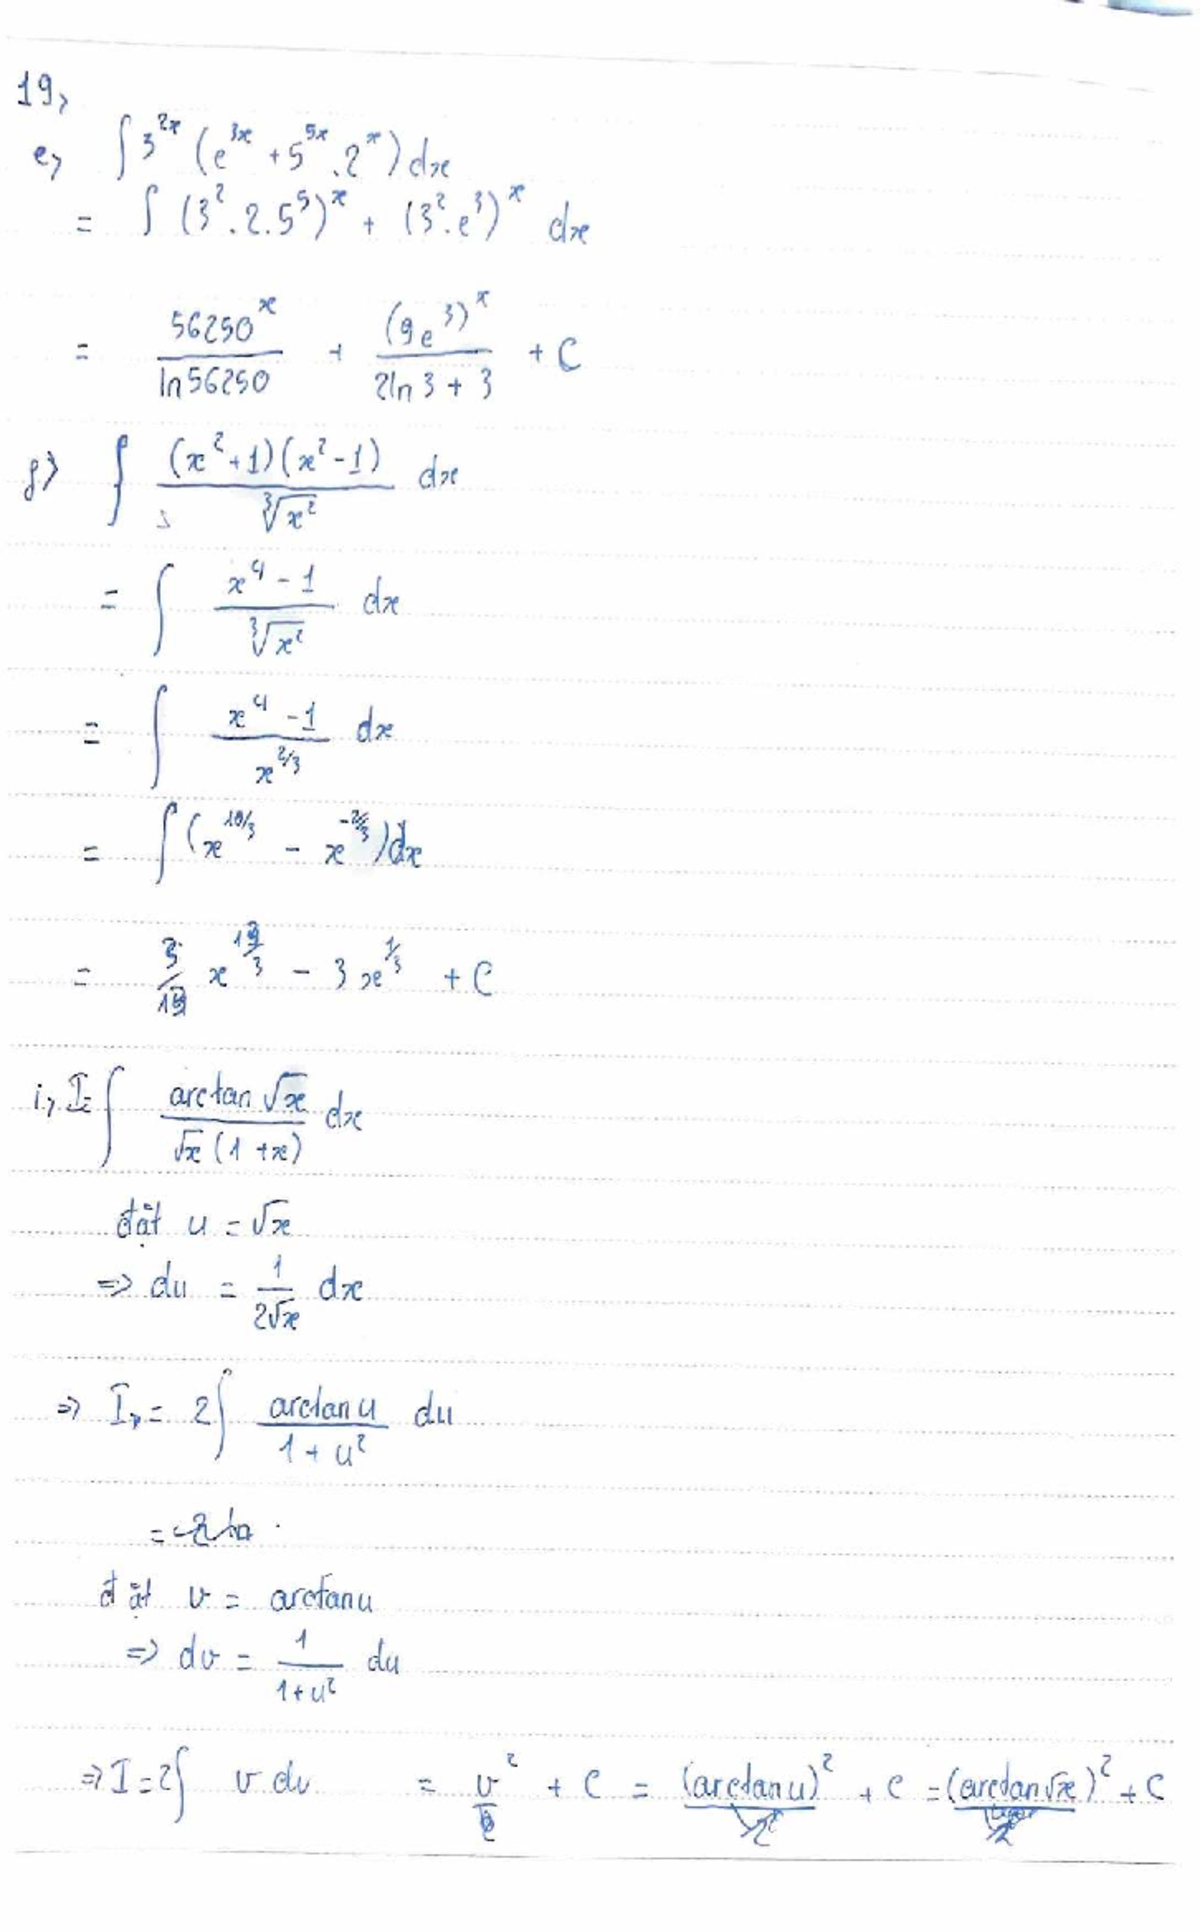 19,
e, ∫ 3^{2x} (e^{3x} + 5^{5x} . 2^x) dx
= ∫ (3^2 . 2 . 5^5)^x + (3^2 . e^3)^x dx
= \frac{56250^x}{ln 56250} + \frac{(9e^3)^x}{2ln 3 + 3} + C
g) ∫ \frac{(x^2 + 1)(x^2 - 1)}{\sqrt[3]{x^2}} dx
= ∫ \frac{x^4 - 1}{\sqrt[3]{x^2}} dx
= ∫ \frac{x^4 - 1}{x^{2/3}} dx
= ∫ (x^{10/3} - x^{-2/3}) dx
= \frac{3}{13} x^{13/3} - 3x^{1/3} + C
i, I = ∫ \frac{arctan √x}{√x (1 + x)} dx
đặt u = √x
=> du = \frac{1}{2√x} dx
=> I = 2∫ \frac{arctan u}{1 + u^2} du
=
đặt v = arctan u
=> dv = \frac{1}{1 + u^2} du
=> I = 2∫ v dv = v^2 + C = (arctan u)^2 + C = (arctan √x)^2 + C